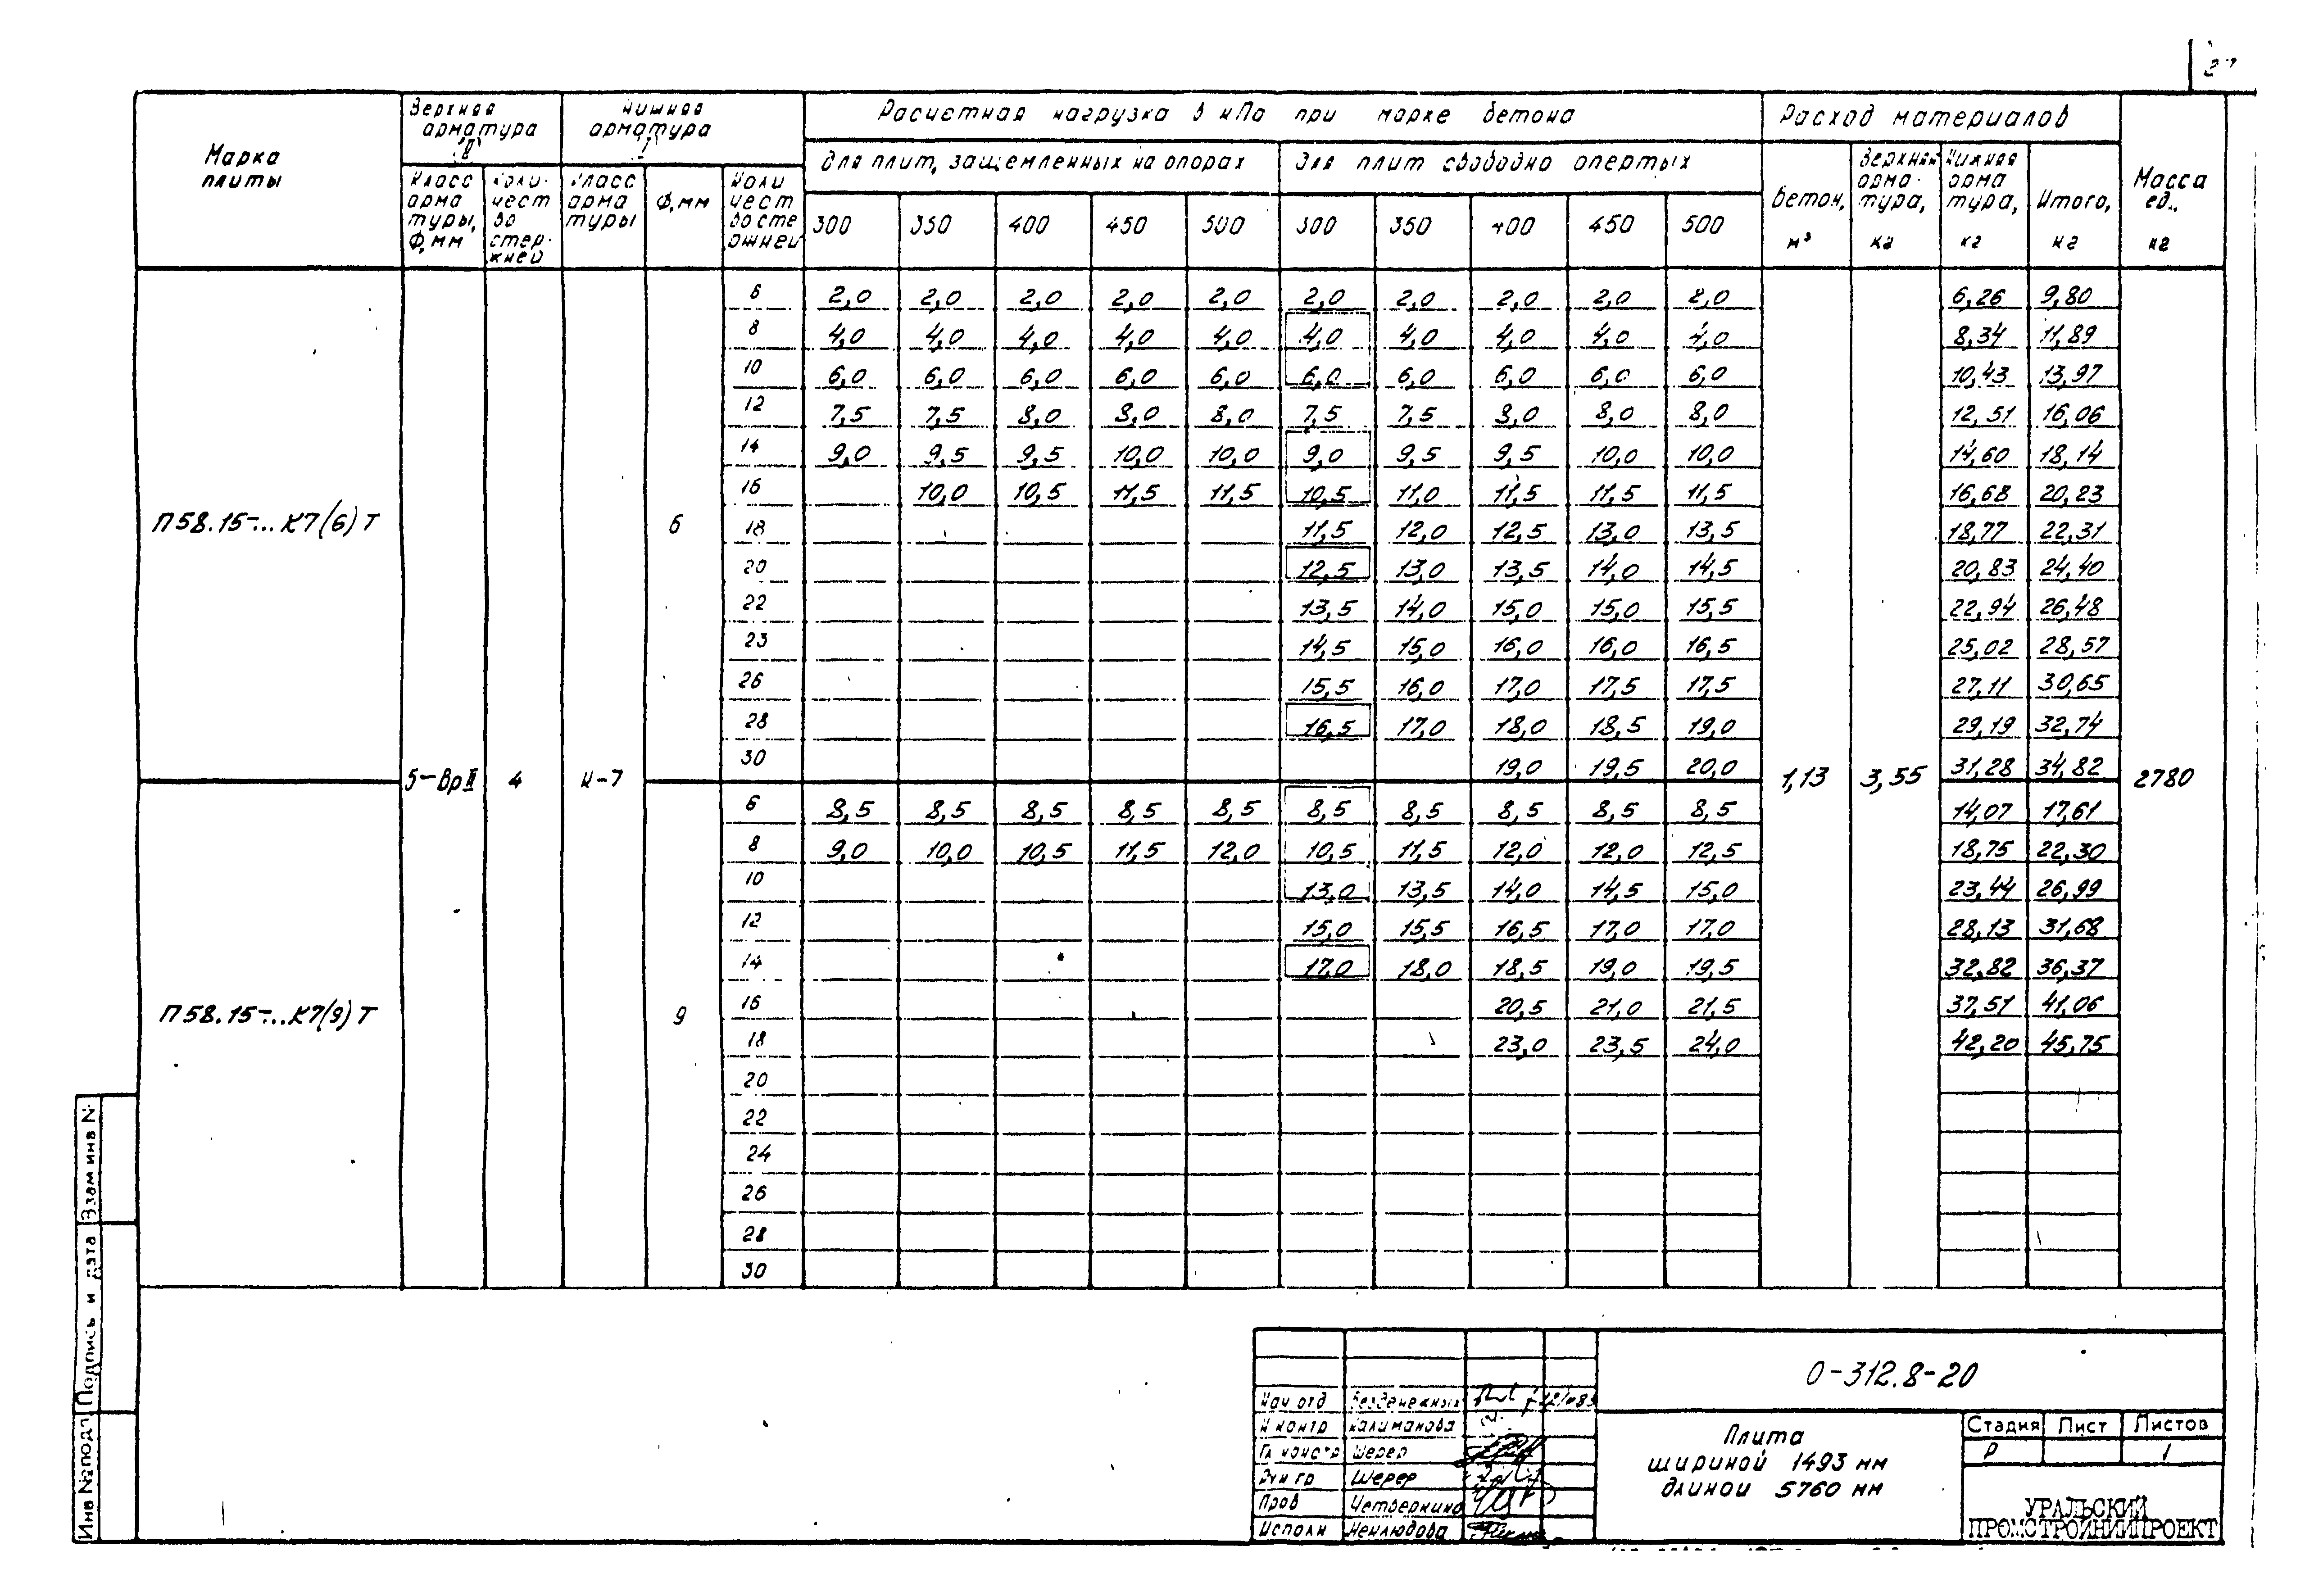 27
Марка плиты
Верхняя арматура "В"
Нижняя арматура
Расчетная нагрузка в кПа при марке бетона
Расход материалов
Масса ед., кг
для плит, защемленных на опорах
для плит свободно опертых
Класс арматуры, Ф, мм
Количество стержней
Класс арматуры
Ф, мм
Количество стержней
300 350 400 450 500 300 350 400 450 500
Бетон, м³
Верхняя арматура, кг
Нижняя арматура, кг
Итого, кг
П58.15-...К7(6)Т
5-ВрII 4 К-7 6 1,13 3,55 2780
6 2,0 2,0 2,0 2,0 2,0 2,0 2,0 2,0 2,0 2,0 6,26 9,80
8 4,0 4,0 4,0 4,0 4,0 4,0 4,0 4,0 4,0 4,0 8,34 11,89
10 6,0 6,0 6,0 6,0 6,0 6,0 6,0 6,0 6,0 6,0 10,43 13,97
12 7,5 7,5 8,0 8,0 8,0 7,5 7,5 8,0 8,0 8,0 12,51 16,06
14 9,0 9,5 9,5 10,0 10,0 9,0 9,5 9,5 10,0 10,0 14,60 18,14
16 10,0 10,5 11,5 11,5 10,5 11,0 11,5 11,5 11,5 16,68 20,23
18 11,5 12,0 12,5 13,0 13,5 18,77 22,31
20 12,5 13,0 13,5 14,0 14,5 20,83 24,40
22 13,5 14,0 15,0 15,0 15,5 22,94 26,48
23 14,5 15,0 16,0 16,0 16,5 25,02 28,57
26 15,5 16,0 17,0 17,5 17,5 27,11 30,65
28 16,5 17,0 18,0 18,5 19,0 29,19 32,74
30 19,0 19,5 20,0 31,28 34,82
П58.15-...К7(9)Т
9
6 8,5 8,5 8,5 8,5 8,5 8,5 8,5 8,5 8,5 8,5 14,07 17,61
8 9,0 10,0 10,5 11,5 12,0 10,5 11,5 12,0 12,0 12,5 18,75 22,30
10 13,0 13,5 14,0 14,5 15,0 23,44 26,99
12 15,0 15,5 16,5 17,0 17,0 28,13 31,68
14 17,0 18,0 18,5 19,0 19,5 32,82 36,37
16 20,5 21,0 21,5 37,51 41,06
18 23,0 23,5 24,0 42,20 45,75
20
22
24
26
28
30
Взам инв №
Подпись и дата
Инв № подл
О-312.8-20
Нач отд Безденежных
Н контр Калиманова
Гл констр Шерер
Рук гр Шерер
Пров Четверкина
Исполн Неклюдова
Плита
шириной 1493 мм
длиной 5760 мм
Стадия Лист Листов
Р 1
УРАЛЬСКИЙ
ПРОМСТРОЙНИИПРОЕКТ